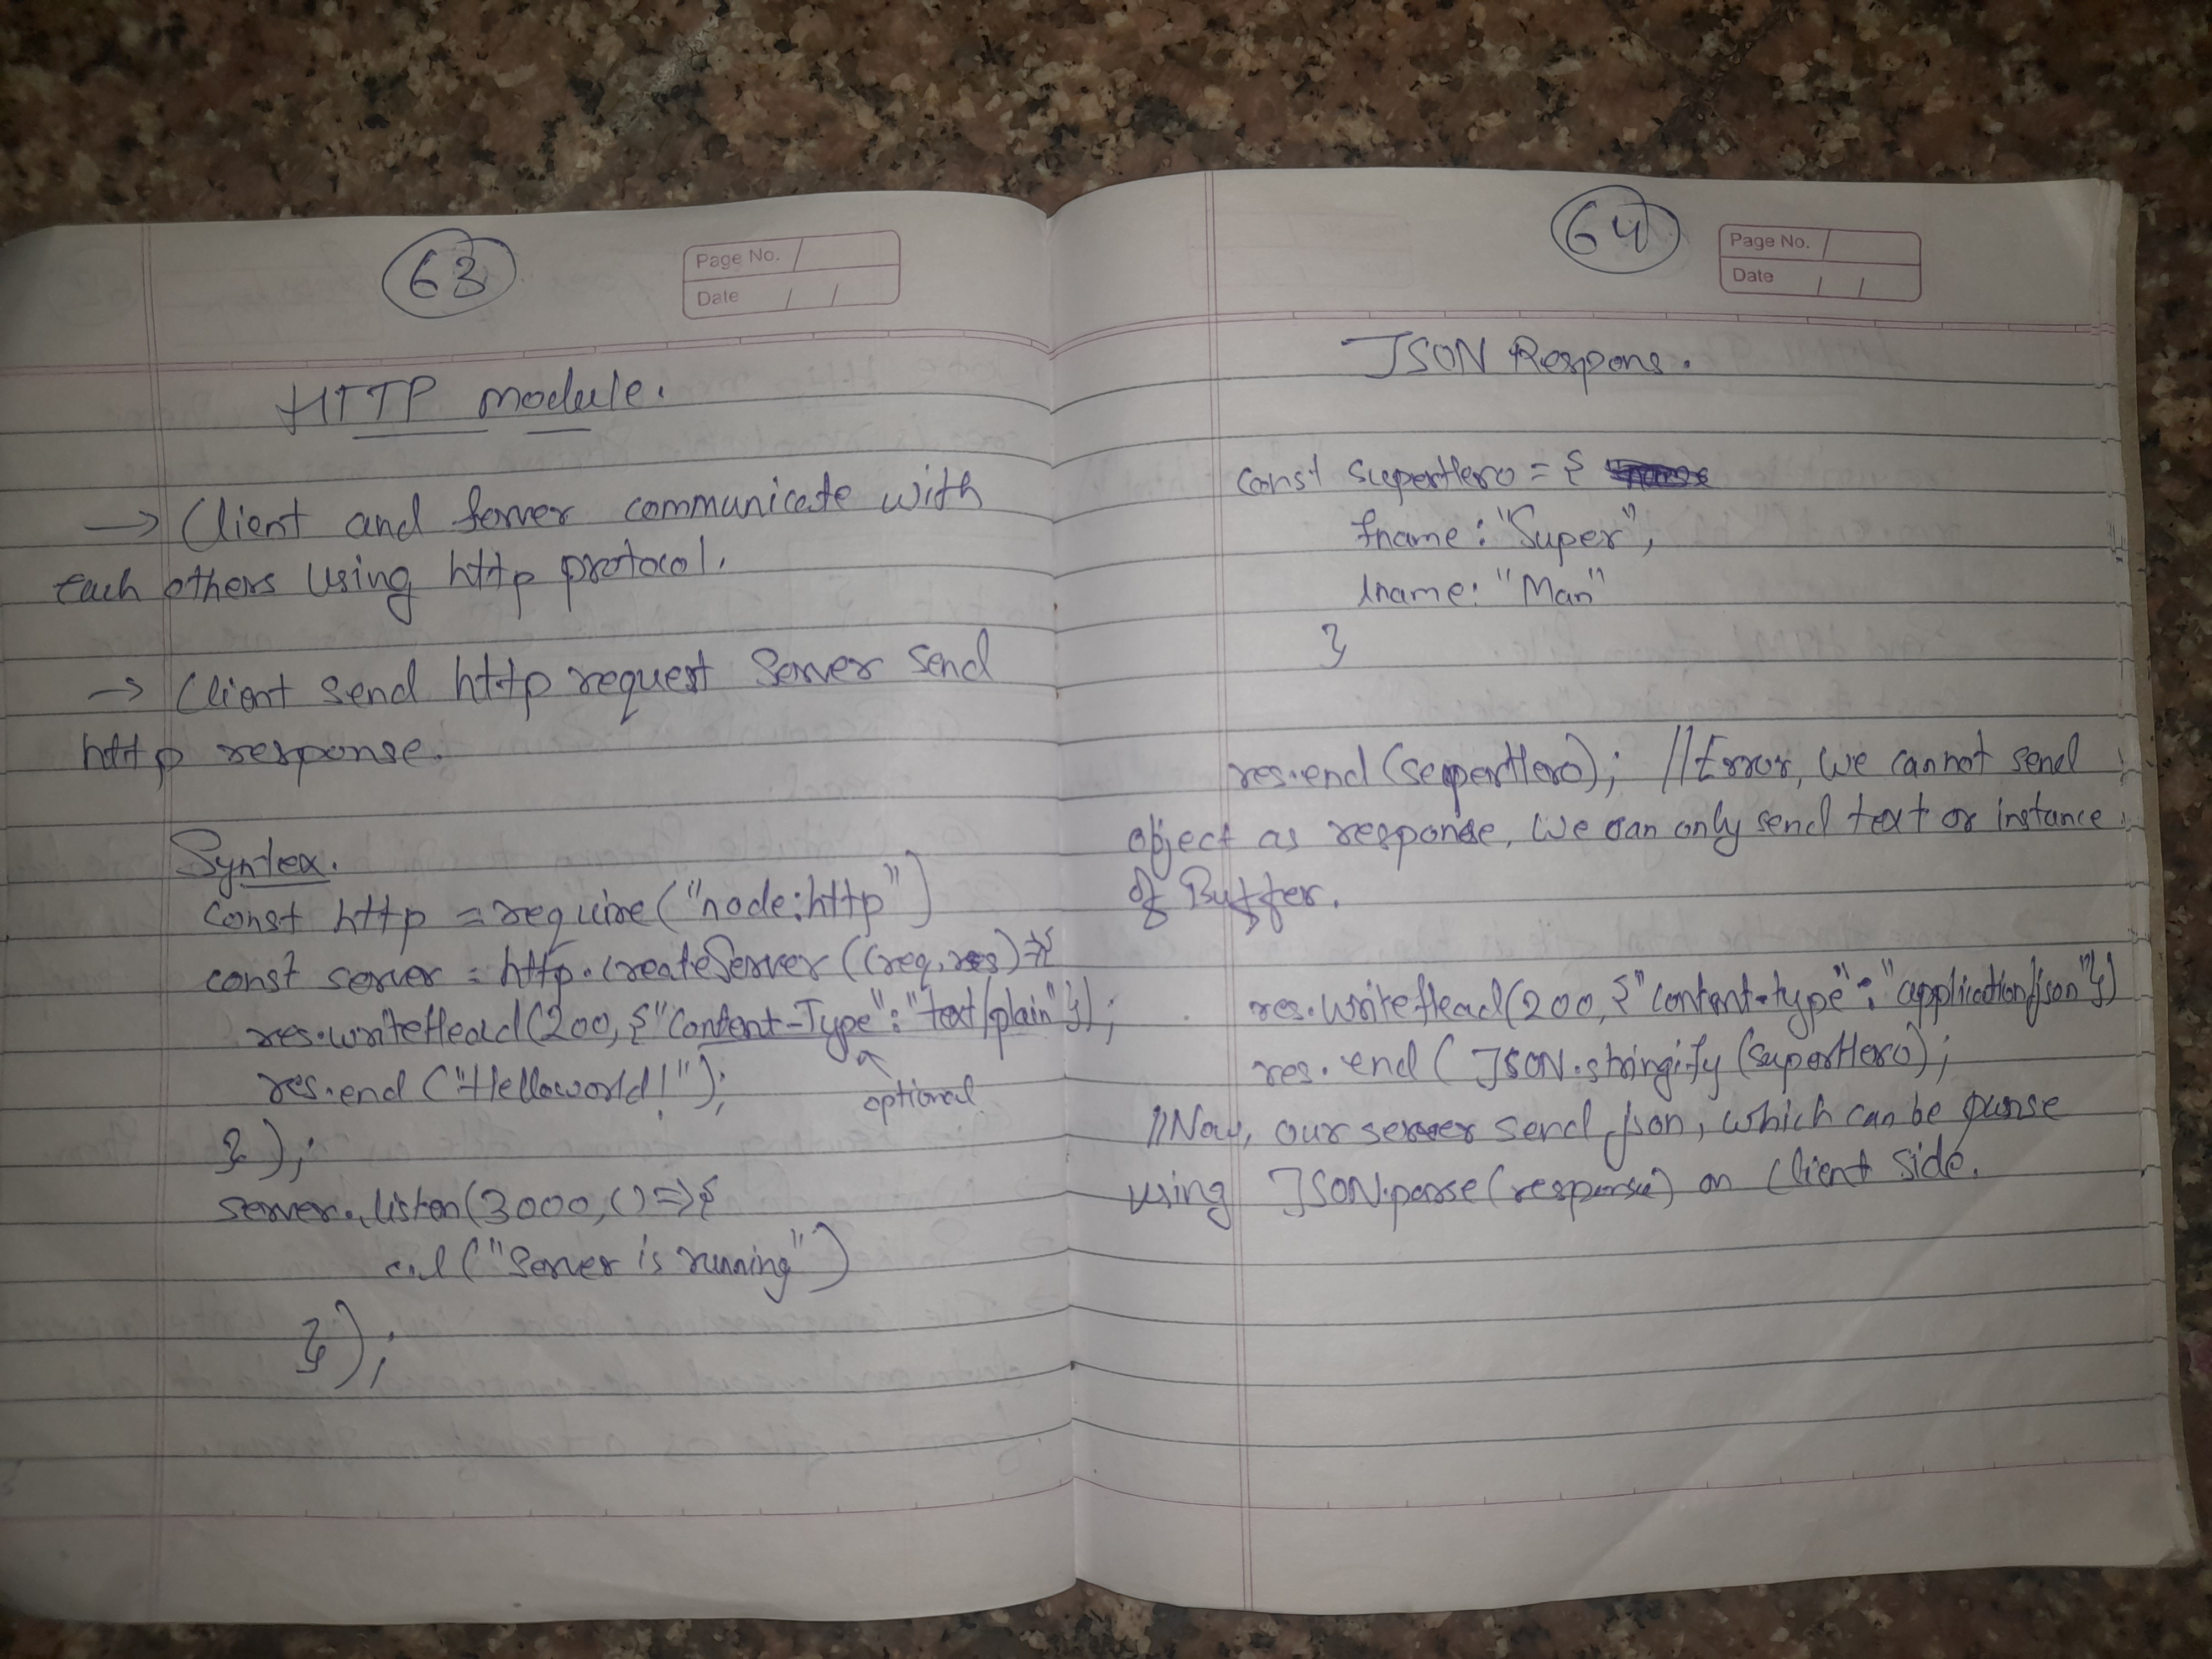 63
Page No.
Date / /
HTTP module.
→ Client and server communicate with
each others using http protocol.
→ Client send http request Server send
http response.
Syntex.
const http = require("node:http")
const server = http.createServer((req,res)=>{
res.writeHead(200,{"Content-Type":"text/plain"});
res.end("Helloworld!");
optional
});
server.listen(3000,()=>{
c.l("Server is running")
});
64
Page No.
Date / /
JSON Respons.
const superHero = {
fname: "Super",
lname: "Man"
}
res.end(superHero); //Error, we cannot send
object as response, we can only send text or instance
of Buffer.
res.writeHead(200,{"content-type":"application/json"})
res.end(JSON.stringify(superHero);
//Now, our server send json, which can be parse
using JSON.parse(response) on client side.